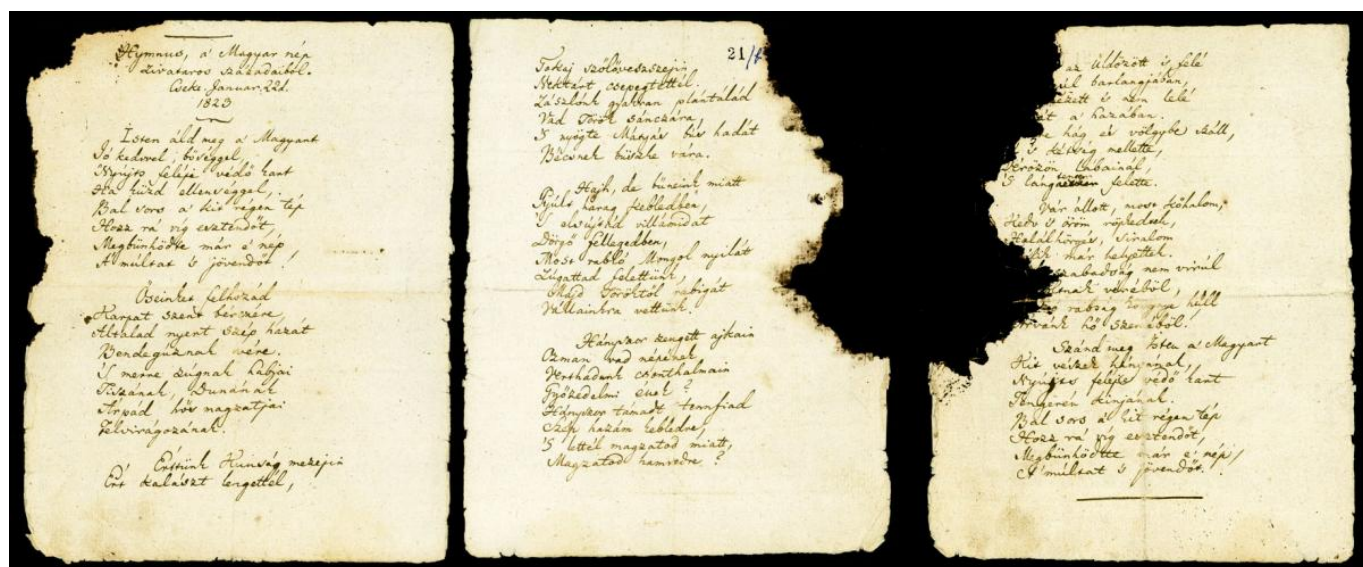 Hymnus, a' Magyar nép
zivataros századaiból.
Cseke Januar. 22d.
1823
Isten áld meg a' Magyart
Jó kedvvel, bőséggel,
Nyújts feléje védő kart
Ha küzd ellenséggel,
Bal sors a' kit régen tép
Hozz rá víg esztendőt,
Megbünhödte már e' nép
A' múltat 's jövendőt!
Őseinket felhozád
Kárpát szent bérczére,
Általad nyert szép hazát
Bendegúznak vére.
'S merre zúgnak habjai
Tiszának, Dunának
Árpád hős magzatjai
Felvirágozának.
Értünk Kunság mezején
Ért kalászt lengettél,
21/
Tokaj szőlővesszein
Nektárt csepegtettél.
Zászlónk gyakran plántálád
Vad Török sánczára,
'S nyögte Mátyás bús hadát
Bécsnek büszke vára.
Hajh, de bűneink miatt
Gyúlt harag kebledben,
'S elsújtád villámidat
Dörgő fellegedben,
Most rabló Mongol nyilát
Zúgattad felettünk,
Majd Töröktől rabigát
Vállainkra vettünk.
Hányszor zengett ajkain
Ozman vad népének
Vert hadunk csonthalmain
Győzedelmi ének?
Hányszor támadt tennfiad
Szép hazám kebledre,
'S lettél magzatod miatt,
Magzatod hamvedre?
az üldözött 's felé
barlangjában,
's nem lelé
a' hazában.
hág és völgybe száll,
's kétség mellette,
lábainál,
'S lángtenger felette.
Vár állott, most kőhalom,
Kedv 's öröm röpkedtek,
Halálhörgés, siralom
már helyettek.
szabadság nem virúl
véréből,
rabság könnye hull
hő szeméből.
Szánd meg Isten a' Magyart
Kit vészek hányának,
Nyújts feléje védő kart
Tengerén kínjának.
Bal sors a' kit régen tép
Hozz rá víg esztendőt,
Megbünhödte már e' nép
A' múltat 's jövendőt.